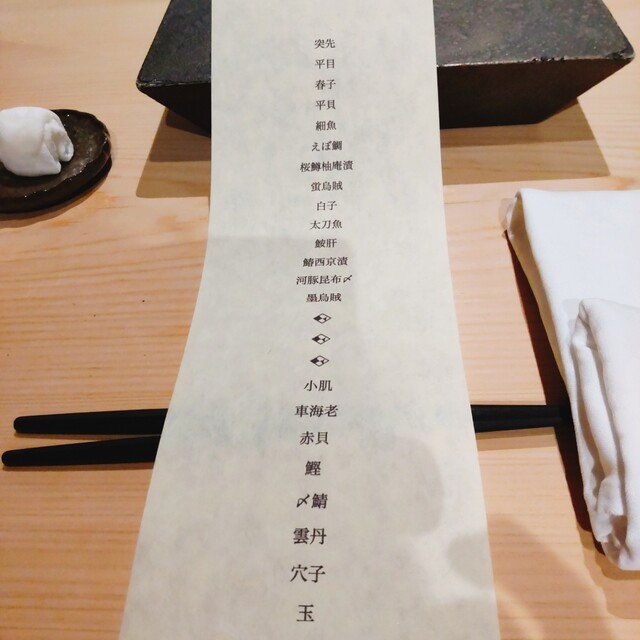 突先
平目
春子
平貝
細魚
えぼ鯛
桜鱒柚庵漬
蛍烏賊
白子
太刀魚
鮟肝
鰆西京漬
河豚昆布〆
墨烏賊
小肌
車海老
赤貝
鰹
〆鯖
雲丹
穴子
玉